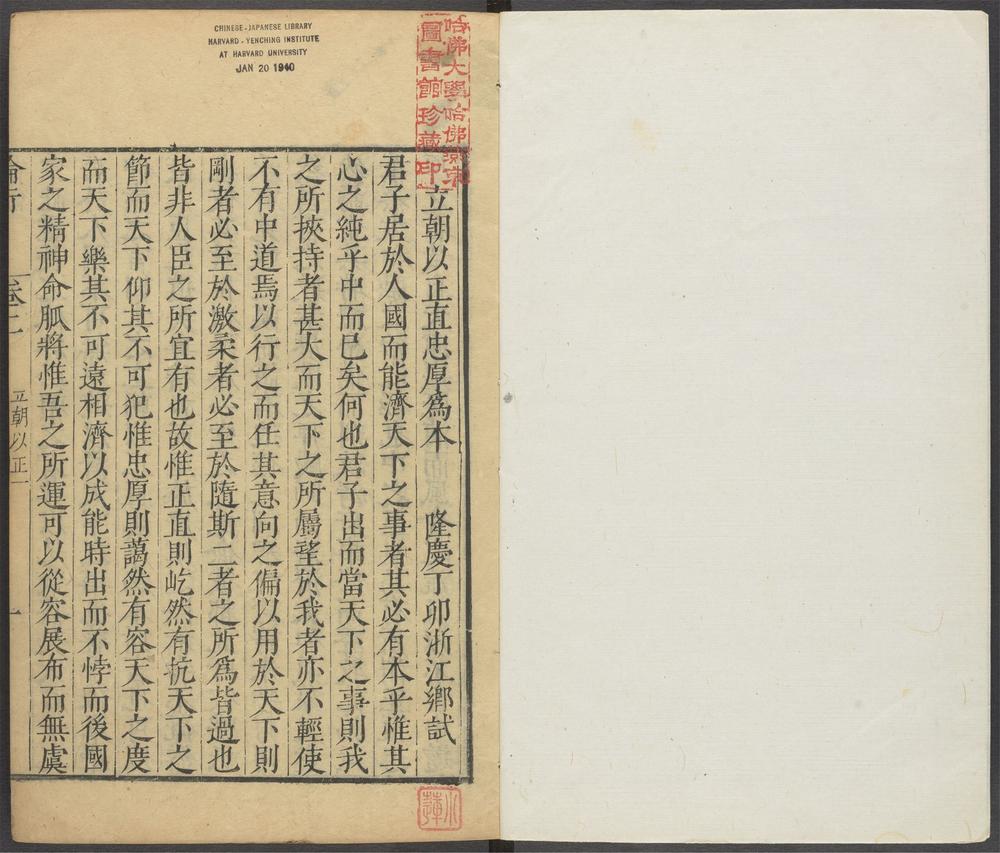 CHINESE-JAPANESE LIBRARY
HARVARD-YENCHING INSTITUTE
AT HARVARD UNIVERSITY
JAN 20 1940
哈佛大學哈佛燕京
圖書館珍藏印
立朝以正直忠厚為本 隆慶丁卯浙江鄉試
君子居於人國而能濟天下之事者其必有本乎惟其
心之純乎中而已矣何也君子出而當天下之事則我
之所挾持者甚大而天下之所屬望於我者亦不輕使
不有中道焉以行之而任其意向之偏以用於天下則
剛者必至於激柔者必至於隨斯二者之所爲皆過也
皆非人臣之所宜有也故惟正直則屹然有抗天下之
節而天下仰其不可犯惟忠厚則藹然有容天下之度
而天下樂其不可遠相濟以成能時出而不悖而後國
家之精神命脈將惟吾之所運可以從容展布而無虞
卷二 立朝以正 一